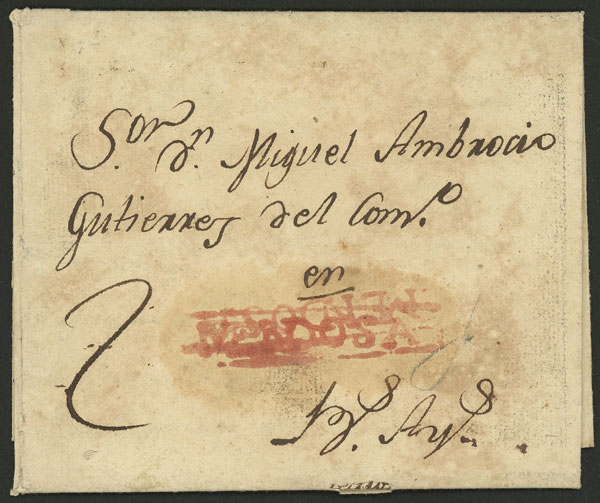 S.or dn. Miguel Ambrocio
Gutierrez del Com.o
en
MENDOSA
2
Bs. Ays.